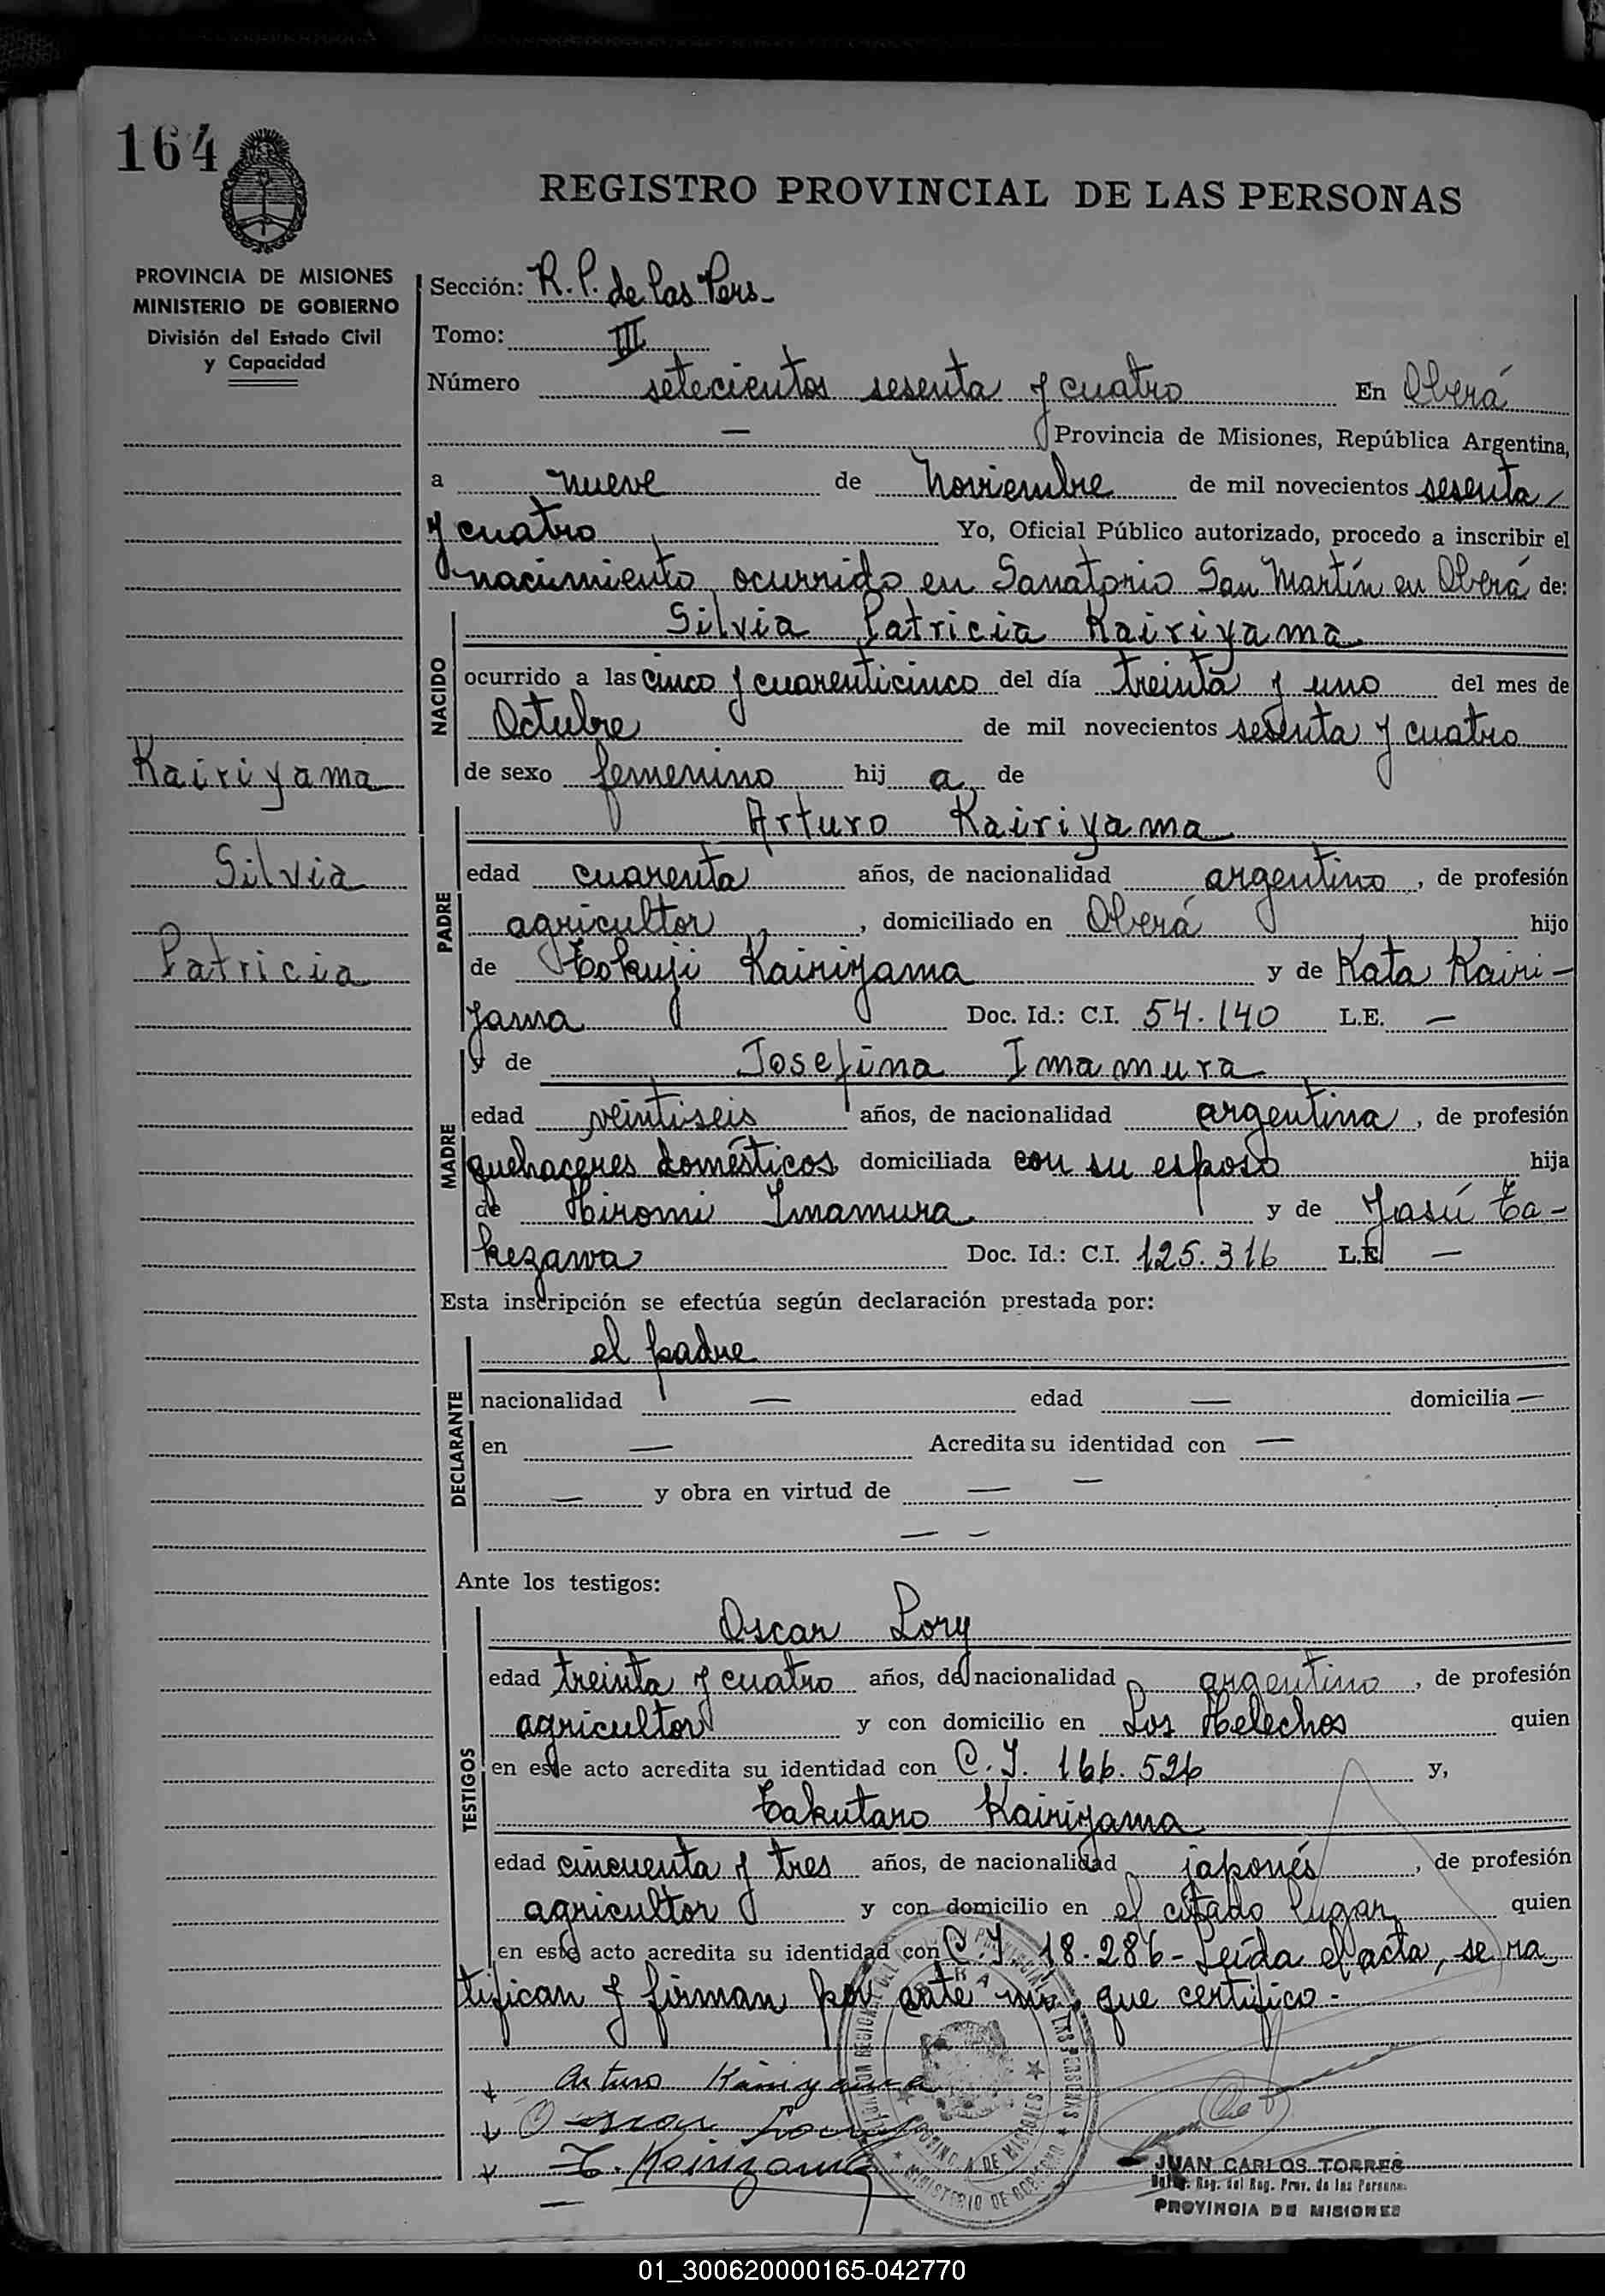 164
REGISTRO PROVINCIAL DE LAS PERSONAS
PROVINCIA DE MISIONES
MINISTERIO DE GOBIERNO
División del Estado Civil
y Capacidad
Sección: R. P. de las Pers-
Tomo: III
Número setecientos sesenta y cuatro En Oberá
— Provincia de Misiones, República Argentina,
a nueve de Noviembre de mil novecientos sesenta
y cuatro Yo, Oficial Público autorizado, procedo a inscribir el
nacimiento ocurrido en Sanatorio San Martín en Oberá de:
NACIDO
Silvia Patricia Kairiyama
ocurrido a las cinco y cuarenticinco del día treinta y uno del mes de
Octubre de mil novecientos sesenta y cuatro
de sexo femenino hij a de
Kairiyama
Silvia
Patricia
PADRE
Arturo Kairiyama
edad cuarenta años, de nacionalidad argentino, de profesión
agricultor, domiciliado en Oberá hijo
de Tokuji Kairiyama y de Kata Kairi-
yama Doc. Id.: C.I. 54.140 L.E. —
MADRE
y de Josefina Imamura
edad veintiseis años, de nacionalidad argentina, de profesión
quehaceres domésticos domiciliada con su esposo hija
de Hiromi Imamura y de Yasú Ta-
kezawa Doc. Id.: C.I. 125.316 L.E. —
Esta inscripción se efectúa según declaración prestada por:
DECLARANTE
el padre
nacionalidad — edad — domicilia —
en — Acredita su identidad con —
— y obra en virtud de — —
— —
Ante los testigos:
TESTIGOS
Oscar Lory
edad treinta y cuatro años, de nacionalidad argentino, de profesión
agricultor y con domicilio en Los Helechos quien
en este acto acredita su identidad con C.I. 166.526 y,
Takutaro Kairiyama
edad cincuenta y tres años, de nacionalidad japonés, de profesión
agricultor y con domicilio en el citado lugar quien
en este acto acredita su identidad con C.I 18.286- Leída el acta, se ra
tifican y firman por ante mí, que certifico-
Arturo Kairiyama
Oscar Lory
T. Kairiyama
MINISTERIO DE GOBIERNO
PROVINCIA DE MISIONES
JUAN CARLOS TORRES
Reg. del Reg. Prov. de las Personas
PROVINCIA DE MISIONES
01_300620000165-042770